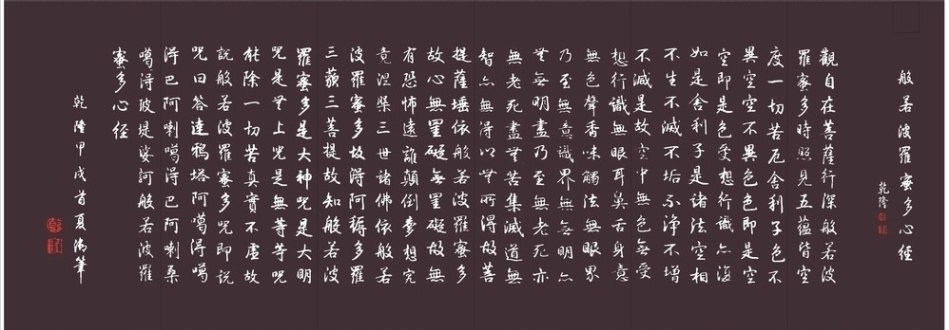 般若波羅蜜多心經
乾隆
觀自在菩薩行深般若波
羅蜜多時照見五蘊皆空
度一切苦厄舍利子色不
異空空不異色色即是空
空即是色受想行識亦復
如是舍利子是諸法空相
不生不滅不垢不淨不增
不減是故空中無色無受
想行識無眼耳鼻舌身意
無色聲香味觸法無眼界
乃至無意識界無無明亦
無無明盡乃至無老死亦
無老死盡無苦集滅道無
智亦無得以無所得故菩
提薩埵依般若波羅蜜多
故心無罣礙無罣礙故無
有恐怖遠離顛倒夢想究
竟涅槃三世諸佛依般若
波羅蜜多故得阿耨多羅
三藐三菩提故知般若波
羅蜜多是大神咒是大明
咒是無上咒是無等等咒
能除一切苦真實不虛故
說般若波羅蜜多咒即說
咒曰答達鴉塔阿噶得噶
得巴阿喇噶得巴阿喇桑
噶得玻堤娑訶般若波羅
蜜多心經
乾隆甲戌首夏御筆